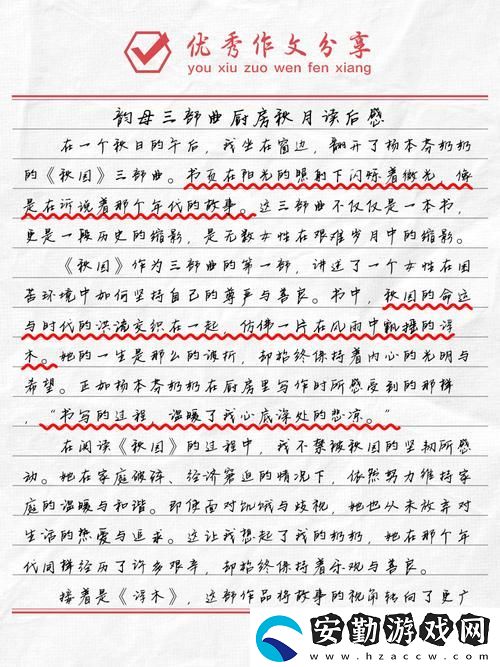 优秀作文分享
you xiu zuo wen fen xiang
韵母三部曲厨房秋月读后感
在一个秋日的午后，我坐在窗边，翻开了杨本芬奶奶
的《秋园》三部曲。书页在阳光的照射下闪烁着微光，像
是在诉说着那个年代的故事。这三部曲不仅仅是一本书，
更是一段历史的缩影，是无数女性在艰难岁月中的缩影。
《秋园》作为三部曲的第一部，讲述了一个女性在困
苦环境中如何坚持自己的尊严与善良。书中，秋园的命运
与时代的洪流交织在一起，仿佛一片在风雨中飘摇的浮
木。她的一生是那么的波折，却始终保持着内心的光明与
希望。正如杨本芬奶奶在厨房里写作时所感受到的那样
，“书写的过程，温暖了我心底深处的悲凉。”
在阅读《秋园》的过程中，我不禁被秋园的坚韧所感
动。她在家庭破碎、经济窘迫的情况下，依然努力维持家
庭的温暖与和谐。即便面对饥饿与歧视，她也从未放弃对
生活的热爱与追求。这让我想起了我的奶奶，她在那个年
代同样经历了许多艰辛，却始终保持着乐观与善良。
接着是《浮木》，这部作品将故事的视角转向了更广
安勤游戏网
www.hzaccw.com